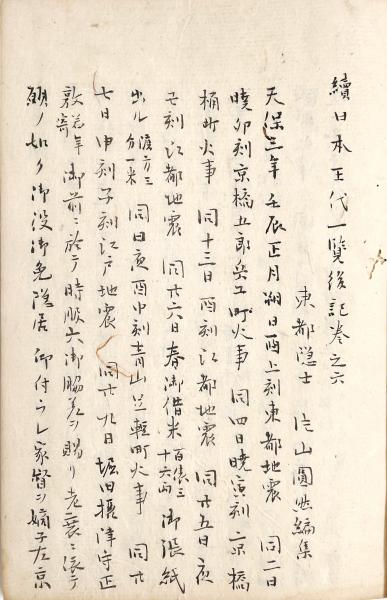 續日本王代一覧後記巻之六
東都隠士 片山圓然編集
天保三年壬辰正月朔日酉上刻東都地震 同二日
暁卯刻京橋五郎兵エ町火事 同四日暁寅刻京橋
桶町火事 同十三日酉刻江都地震 同廿五日夜
亥刻江都地震 同廿六日春御借米百俵三十六両御張紙
出ル渡方三分一米 同日夜酉中刻青山笠町火事 同廿
七日申刻子刻江戸地震 同廿九日堀田摂津守正
敦年寄御前ニ於テ時服六御脇差ヲ賜リ老衰ニ依テ
願ノ如ク御役御免隠居仰付ラレ家督ヲ嫡子左京